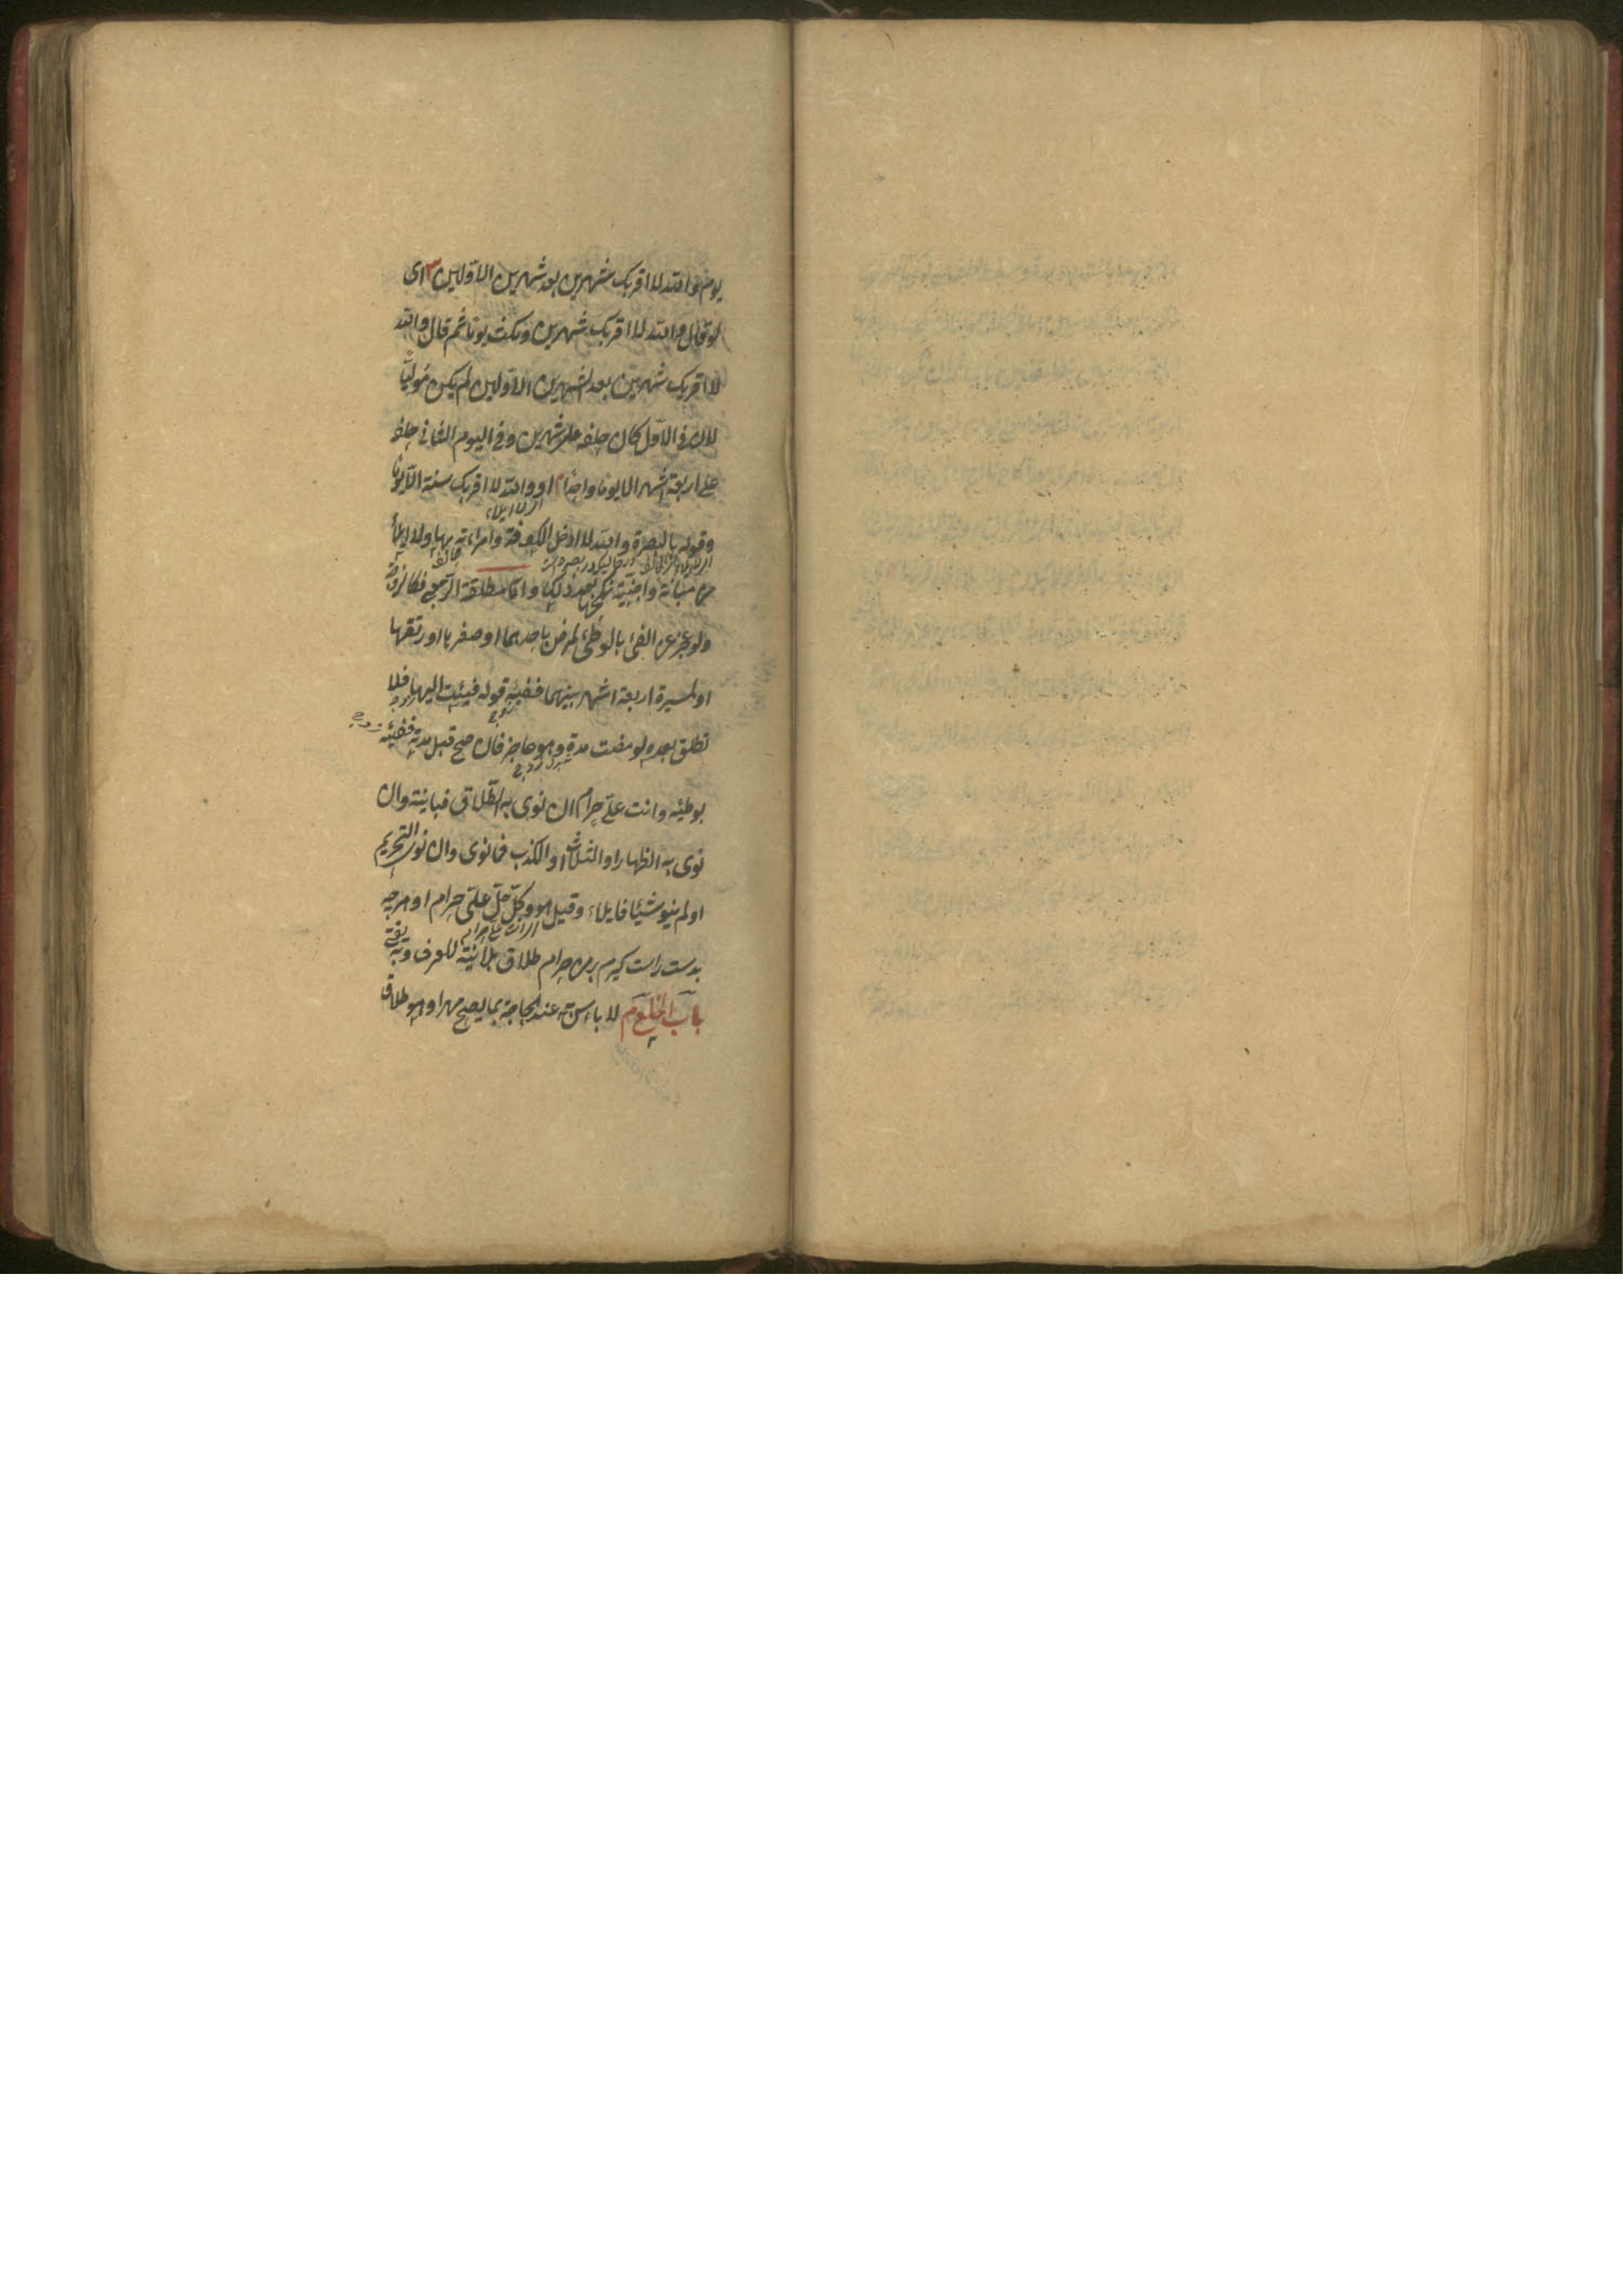 يوم والله لا اقربك شهرين بعد شهرين الاولين ش اى
لو قال والله لا اقربك شهرين ومكث يوما ثم قال والله
لا اقربك شهرين بعد الشهرين الاولين لم يكن موليًا
لان فى الاول كان حلفه على شهرين وفى اليوم الثانى حلفه
على اربعة اشهر الا يوما واحدًا م او والله لا اقربك سنة الا يوما
اى لا ايلاء
وقوله بالبصرة والله لا ادخل الكوفة وامراته بها ولا ايلاء
من مبانة واجنبية نكحها بعد ذلك واما مطلقة الرجعى فكالزوجة
ولو عجز عن الفئ بالوطئ لمرض باحدهما او صغرها او رتقها
او لمسيرة اربعة اشهر بينهما ففيئه قوله فيئت اليها فلا
تطلق بعده لو مضت مدته وهو عاجز فان صح قبل مدته ففيئه
زوج
بوطئه وانت علىّ حرام ان نوى به الطلاق فباينة وان
نوى به الظهار او الثلاث او الكذب فما نوى وان نوى التحريم
او لم ينو شيئا فايلاء وقيل هو وكل حلّ علىّ حرام او هرچه
اى انت على حرام
بدست راست گيرم بر من حرام طلاق بلا نية للعرف وبه يفتى
باب الخلع م لا باس به عند الحاجة بما يصح مهرا وهو طلاق